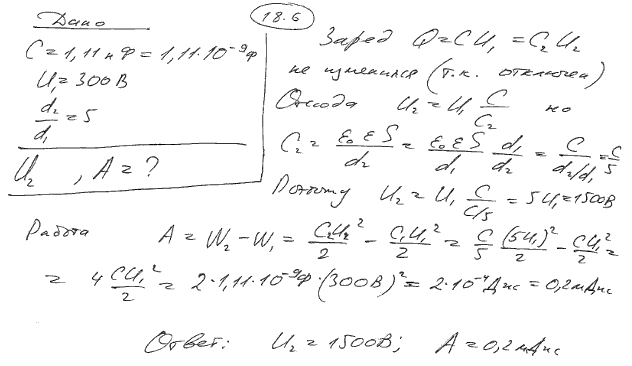 18.6
Дано
C = 1,11 нФ = 1,11·10⁻⁹Ф
U₁ = 300В
d₂/d₁ = 5
U₂ , A = ?
Заряд Q = CU₁ = C₂U₂
не изменился (т.к. отключен)
Отсюда U₂ = U₁ C/C₂ но
C₂ = ε₀εS/d₂ = ε₀εS/d₁ d₁/d₂ = C/(d₂/d₁) = C/5
Поэтому U₂ = U₁ C/(C/5) = 5U₁ = 1500В
Работа A = W₂ - W₁ = C₂U₂²/2 - C₁U₁²/2 = C/5 (5U₁)²/2 - CU₁²/2 =
= 4 CU₁²/2 = 2·1,11·10⁻⁹Ф·(300В)² = 2·10⁻⁴Дж = 0,2мДж
Ответ: U₂ = 1500В; A = 0,2мДж